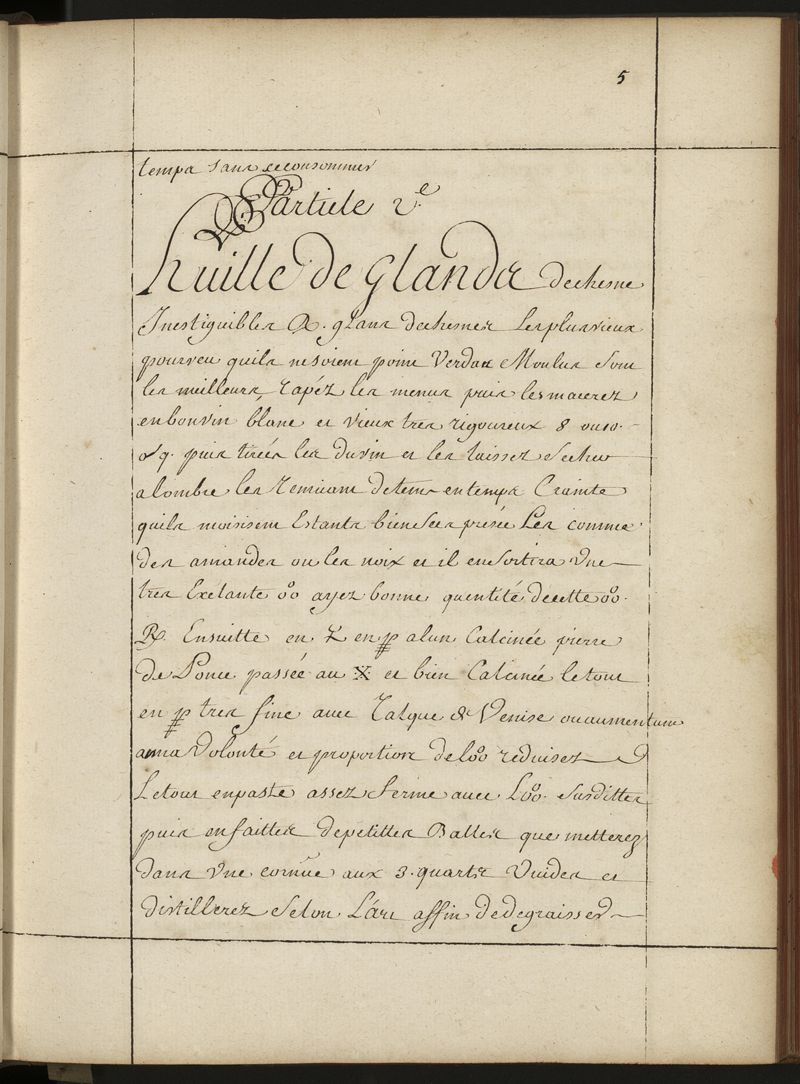 5
temps sans se consommer
Particle 2.e
huille de glands de chesne
Inestiguibles R. glans de chesnes les plus vieux
pourveu quils ne soient point Verds et Moulus sont
les meilleurs, rapéz les menus puis les macerez
en bon vin blanc et vieux tres rigoureux 8 ou 10.
puis tirés les du vin et les laissez secher
a lombre les remuant de tems en temps Crainte
quils moisissent Estants bien secs presée Les comme
des amandes ou les noix et il en sortira Une
tres Exelante oo ayez bonne quentité de cette oo.
R. Ensuitte en en alun Calcinée pierre
de Ponce passée au et bien Calcinée le tout
en tres fine avec Talque de Venise ou aumentum
Volonté et proportion de loo reduisez
Le tout en paste assez ferme avec Loo. susditte
puis en faittes de petittes Balles que metterez
dans Une cornüe aux 3. quarts Vuides et
distillerez selon L'art affin de degraisser